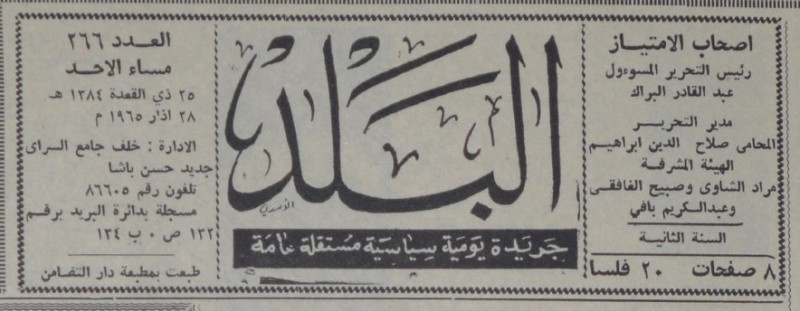 اصحاب الامتياز
رئيس التحرير المسوءول
عبد القادر البراك
مدير التحرير
المحامى صلاح الدين ابراهيم
الهيئة المشرفة
مراد الشاوى وصبيح الغافقى
وعبدالكريم بافي
السنة الثانية
٨ صفحات ٢٠ فلسا
البلد
جريدة يومية سياسية مستقلة عامة
العدد ٢٦٦
مساء الاحد
٢٥ ذي القعدة ١٣٨٤ هـ
٢٨ اذار ١٩٦٥ م
الادارة : خلف جامع السراى
جديد حسن باشا
تلفون رقم ٨٦٦٠٥
مسجلة بدائرة البريد برقم
١٢٢ ص ٠ ب ١٣٤
طبعت بمطبعة دار التضامن